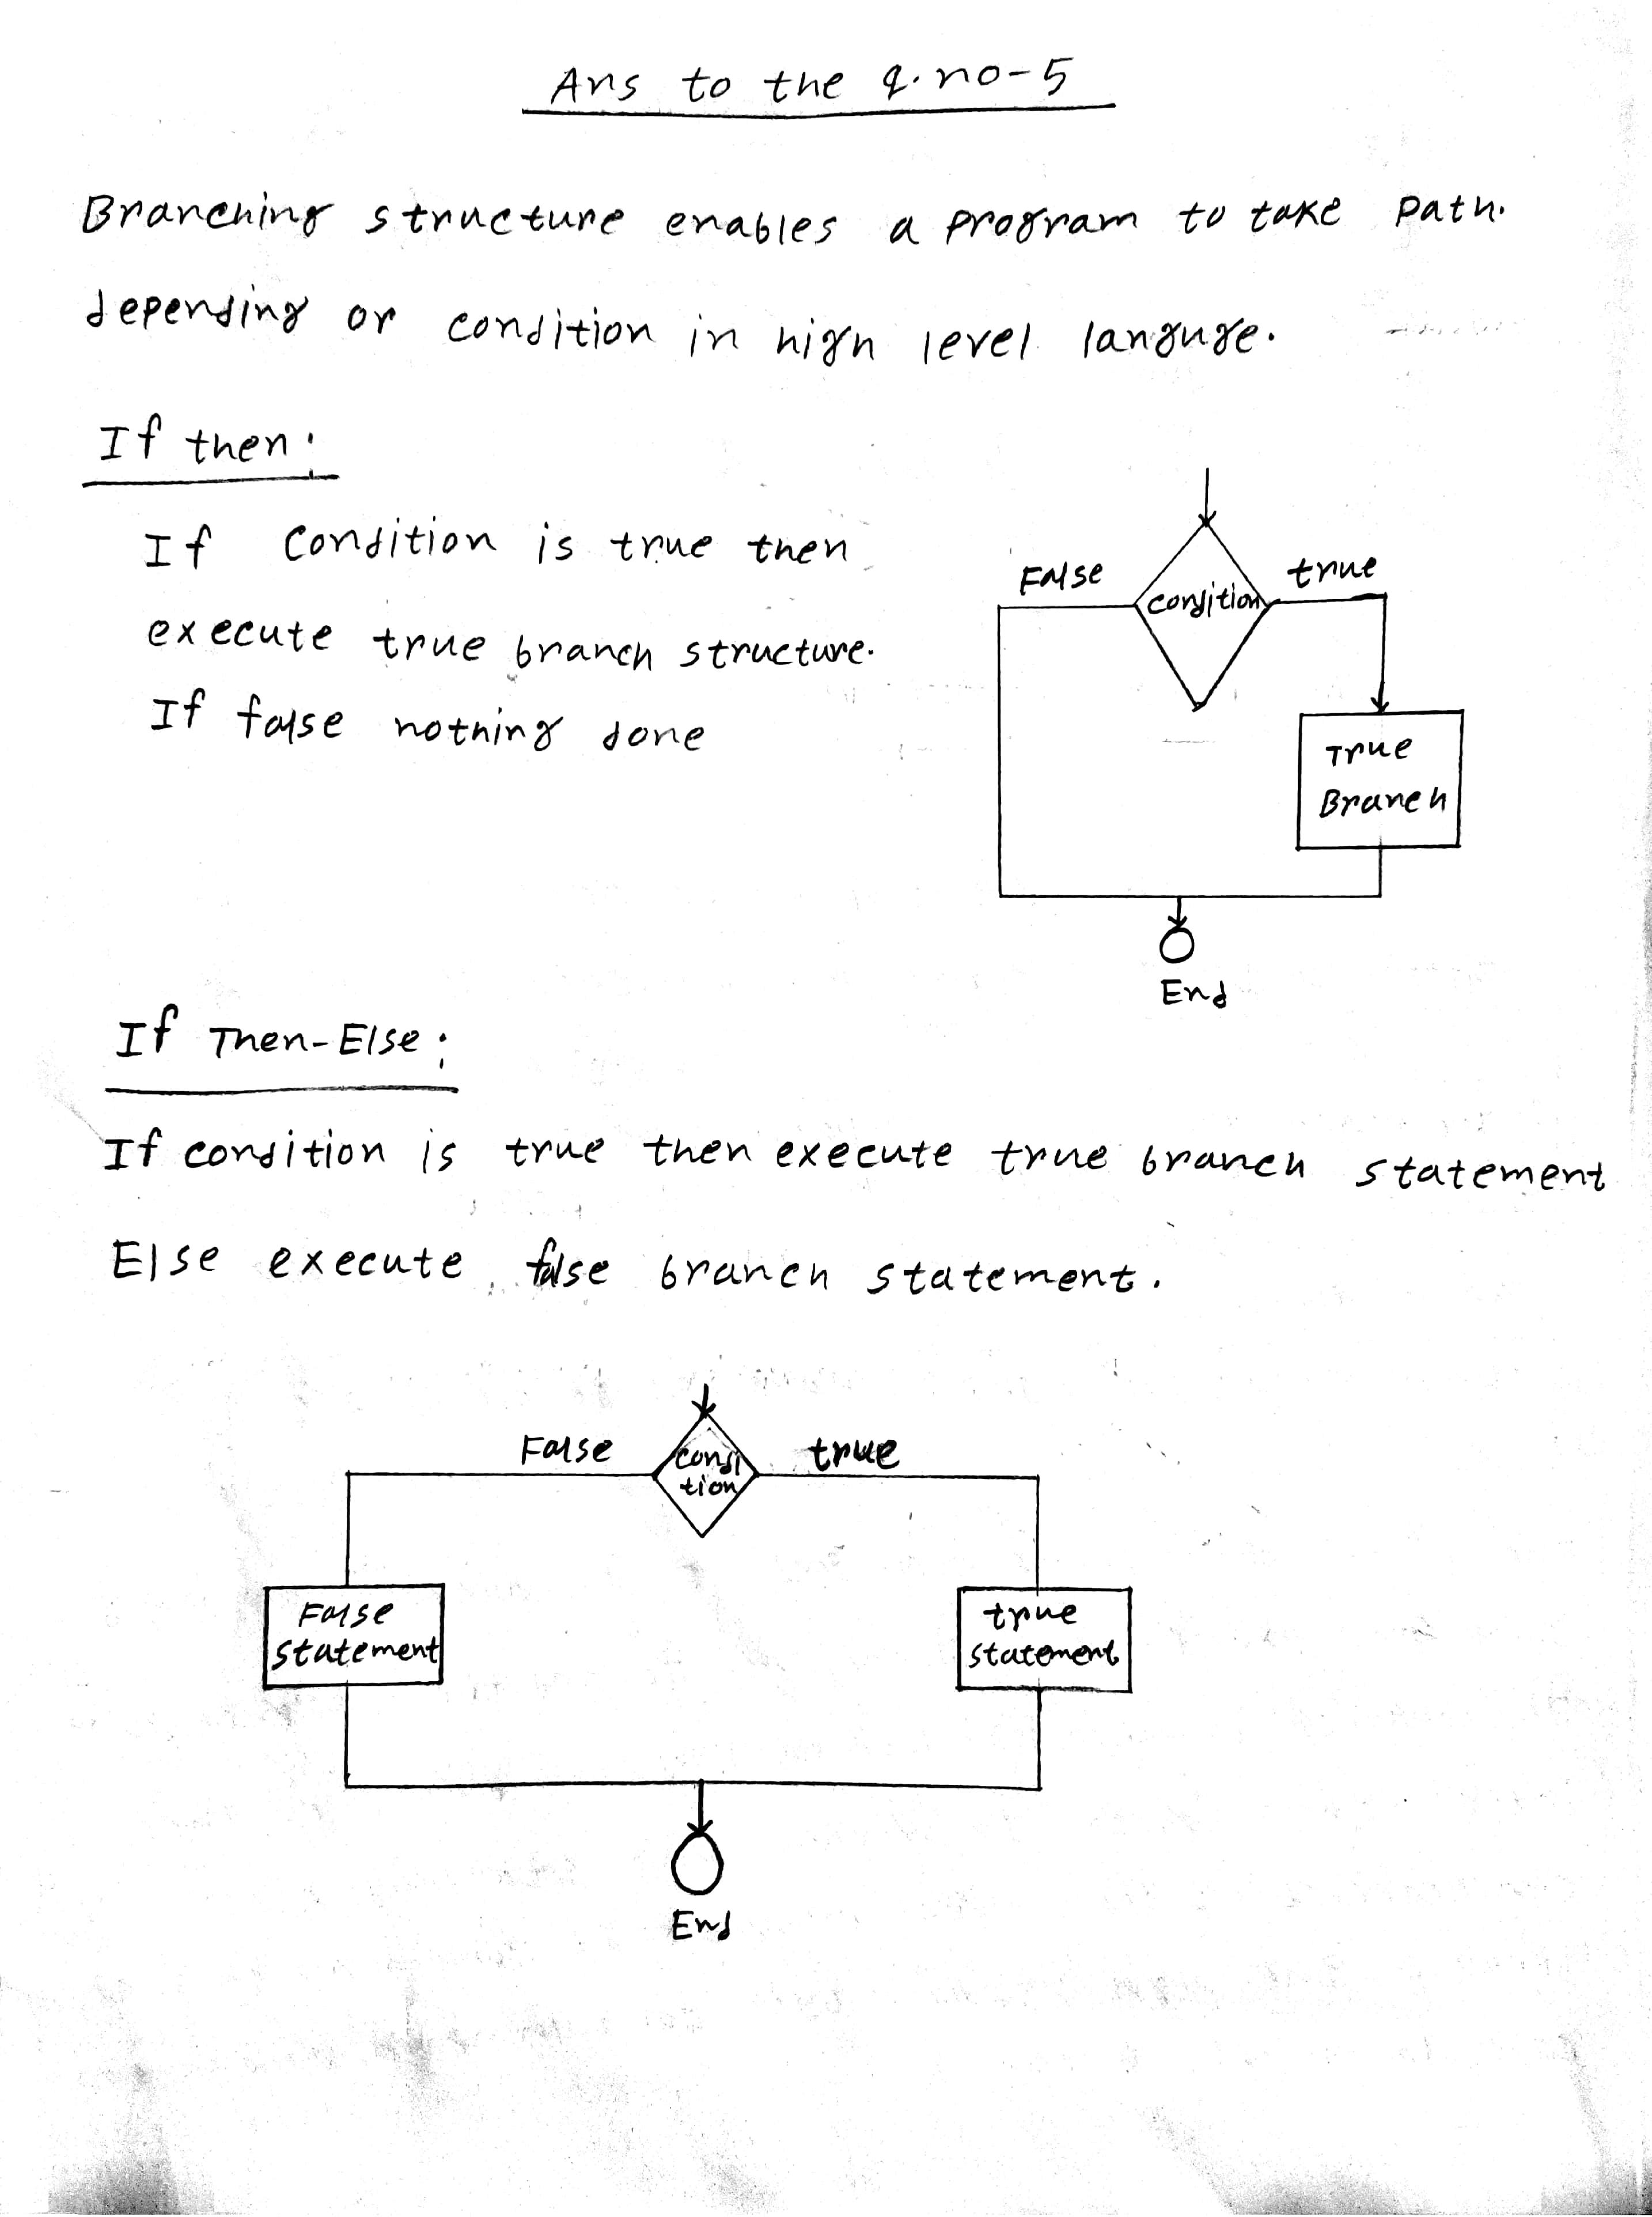 Ans to the q.no-5
Branching structure enables a program to take path.
depending or condition in high level languge.
If then:
If condition is true then
execute true branch structure.
If false nothing done
False
condition
true
True
Branch
End
If Then-Else:
If condition is true then execute true branch statement
Else execute false branch statement.
False
condi
tion
true
False
statement
true
statement
End